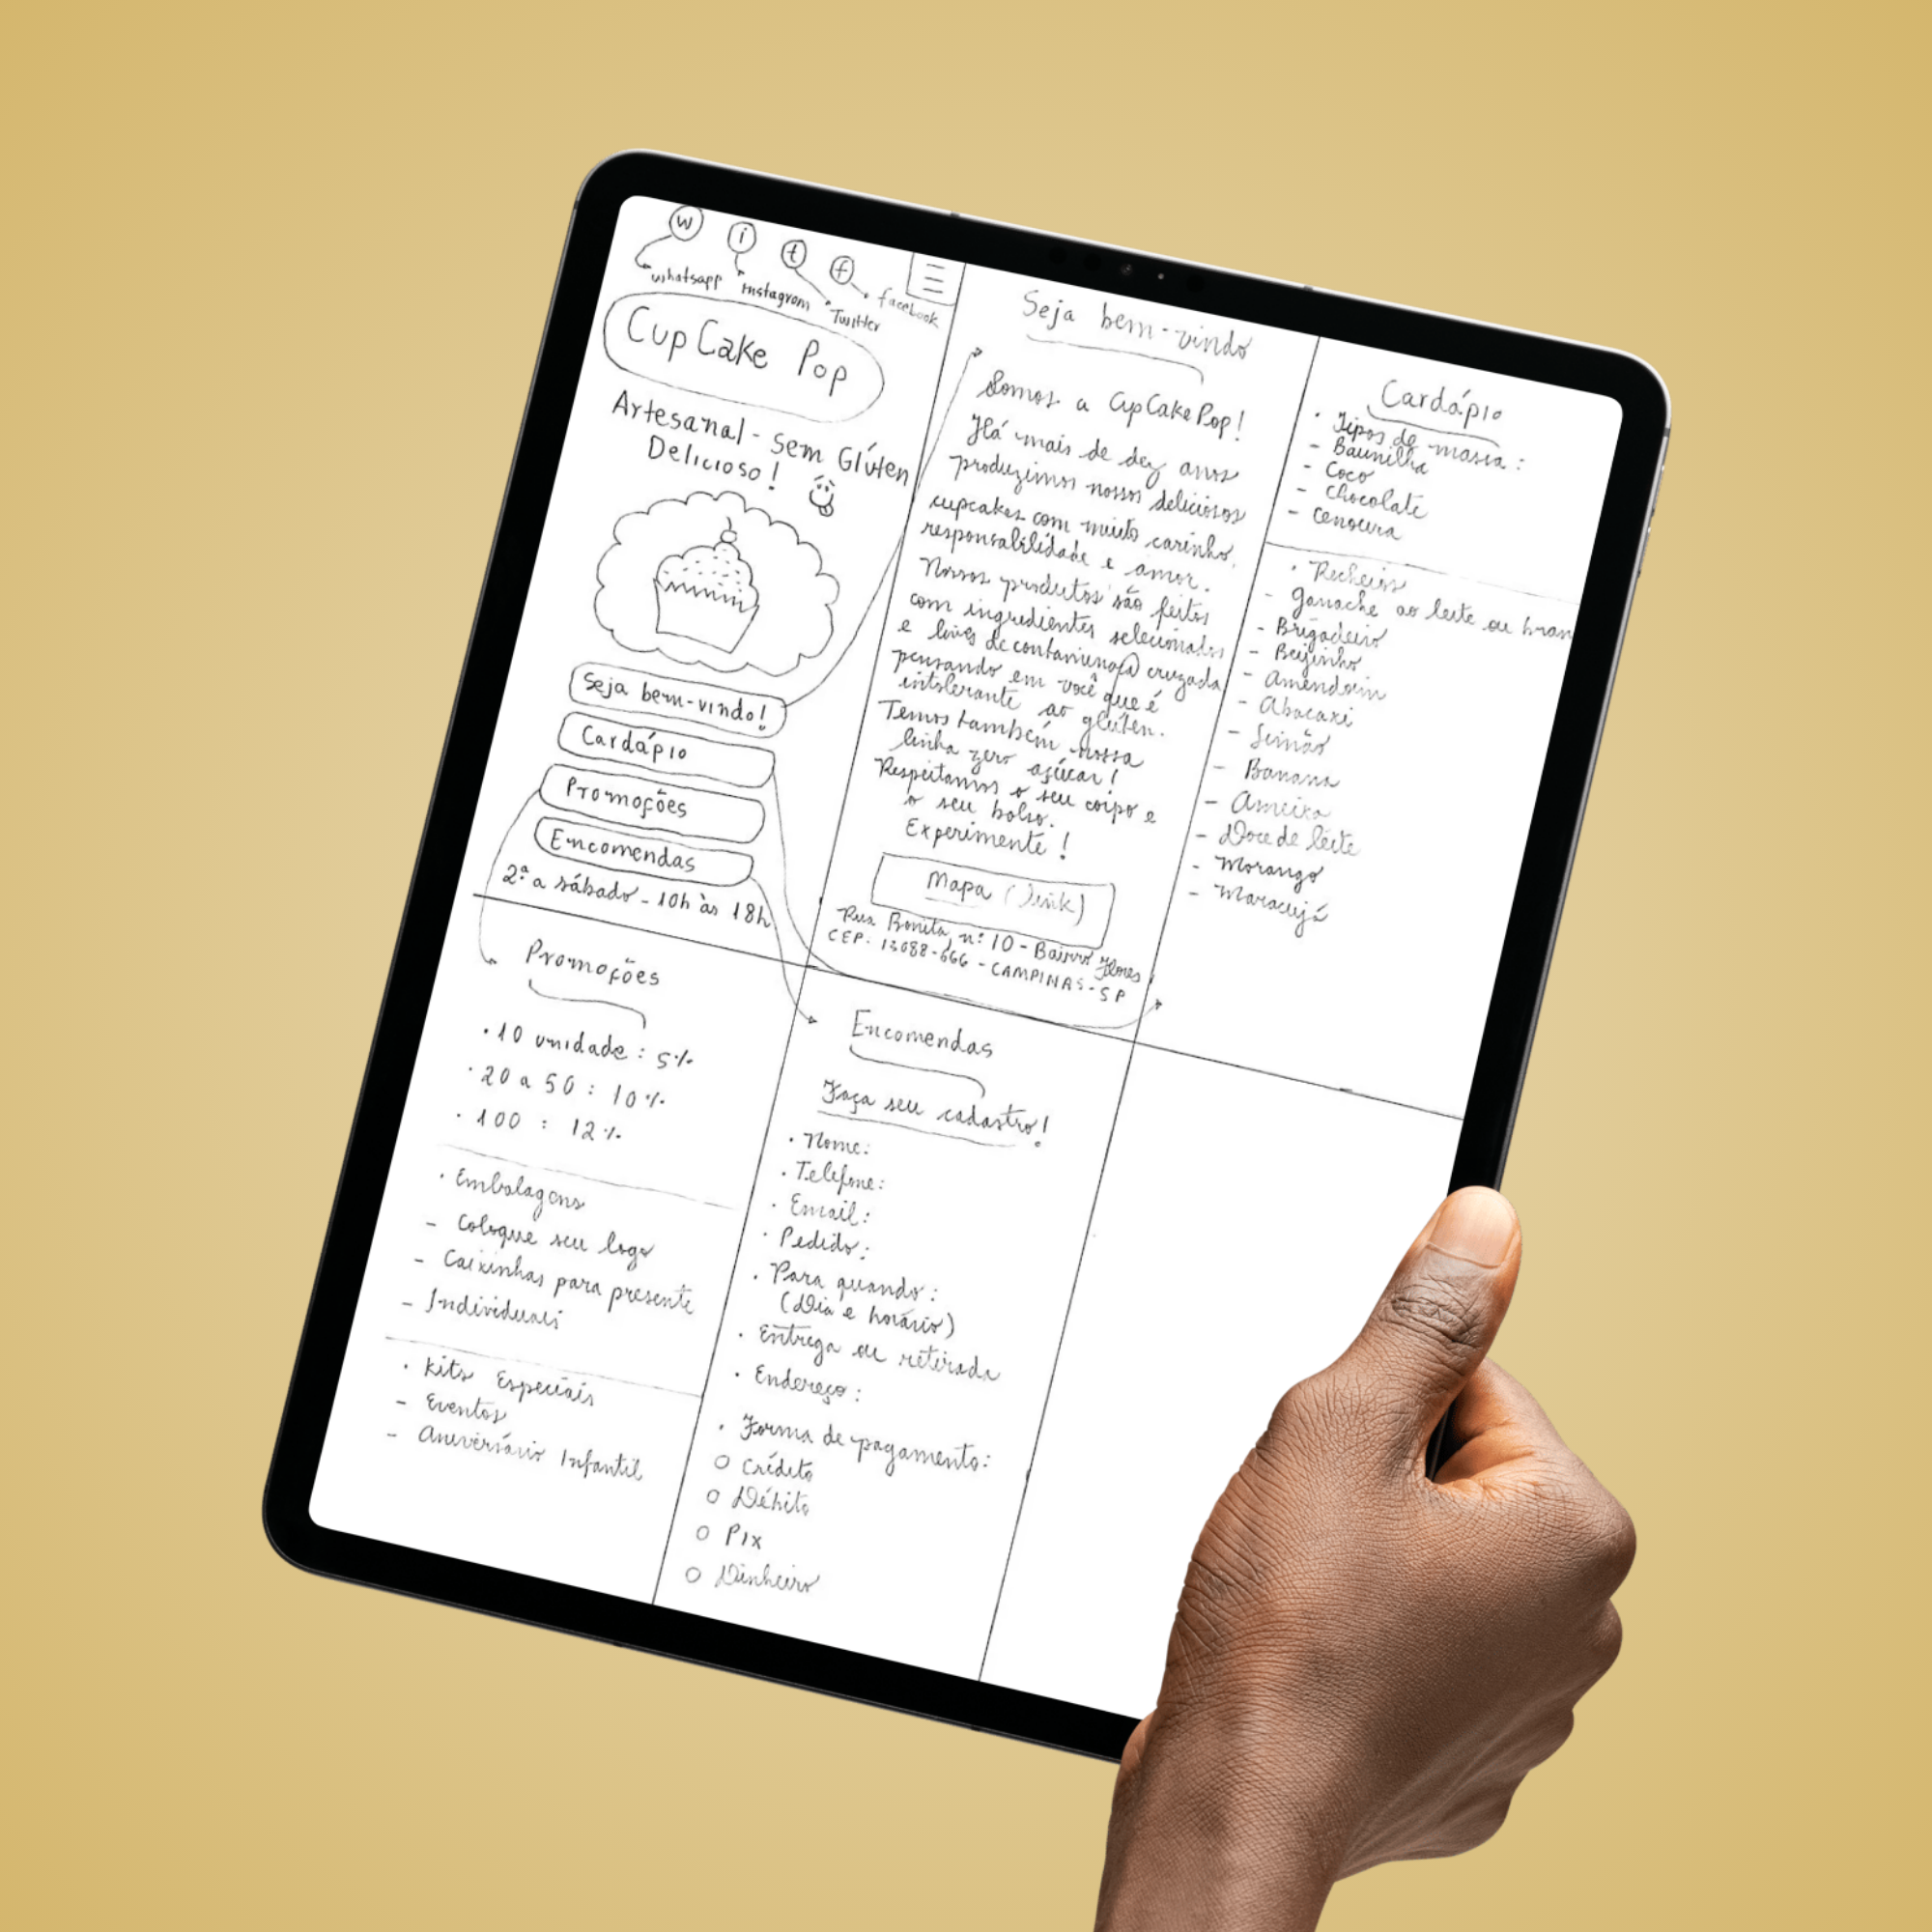 w i t f
whatsapp instagram Twitter facebook
CupCake Pop
Artesanal - Sem Glúten
Delicioso!
Seja bem-vindo!
Cardápio
Promoções
Encomendas
2ª a sábado - 10h às 18h
Seja bem-vindo
Somos a CupCake Pop!
Há mais de dez anos
produzimos nossos deliciosos
cupcakes com muito carinho,
responsabilidade e amor.
Nossos produtos são feitos
com ingredientes selecionados
e livres de cruzada
pensando em você que é
intolerante ao glúten.
Temos também nossa
linha zero açúcar!
Respeitamos o seu corpo e
o seu bolso.
Experimente!
Mapa (link)
Rua Bonita, nº 10 - Bairro Flores
CEP. 13088-666 - CAMPINAS - SP
Cardápio
• Tipos de massa:
- Baunilha
- Coco
- Chocolate
- Cenoura
• Recheios
- Ganache ao leite ou bran
- Brigadeiro
- Beijinho
- Amendoim
- Abacaxi
- Limão
- Banana
- Ameixa
- Doce de leite
- Morango
- Maracujá
Promoções
• 10 unidade: 5%
• 20 a 50: 10%
• 100: 12%
• Embalagens
- Coloque seu logo
- Caixinhas para presente
- Individuais
• Kits Especiais
- Eventos
- Aniversário Infantil
Encomendas
Faça seu cadastro!
• Nome:
• Telefone:
• Email:
• Pedido:
• Para quando:
(Dia e horário)
• Entrega ou retirada
• Endereço:
• Forma de pagamento:
○ Crédito
○ Débito
○ Pix
○ Dinheiro